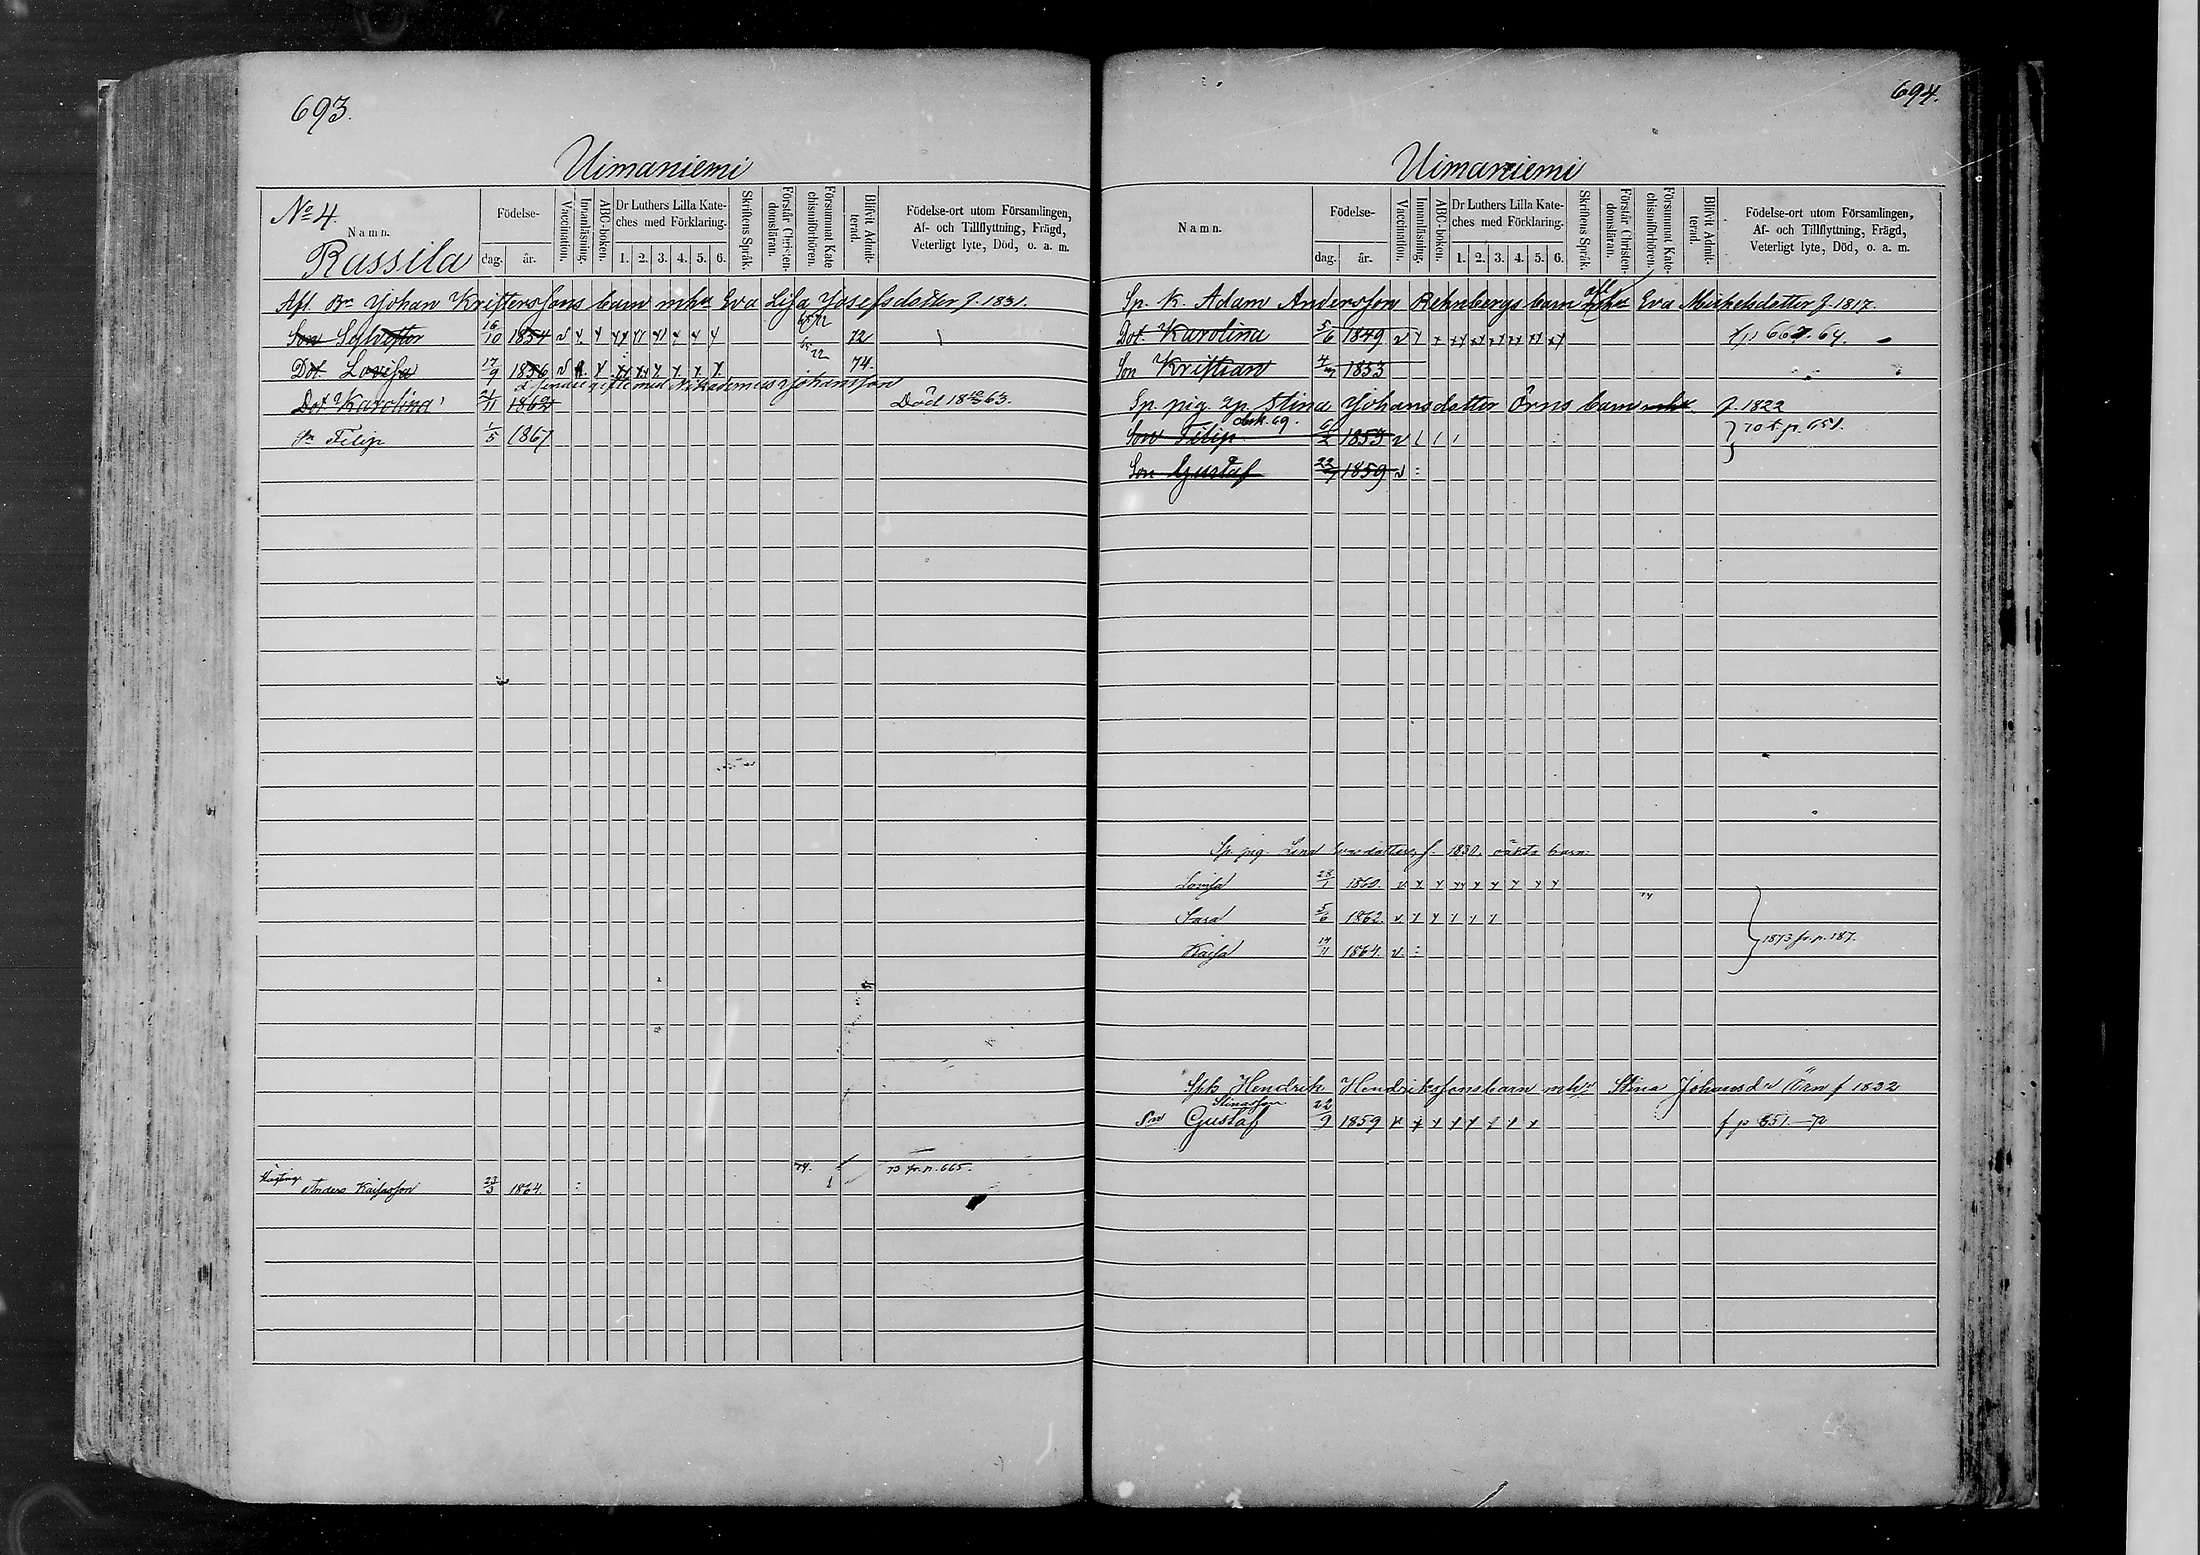 693.
Uimaniemi
No 4.
Namn.
Födelse-
dag.
år.
Vaccination.
Innanläsning.
ABC-boken.
Dr Luthers Lilla Kate-
ches med Förklaring.
1. 2. 3. 4. 5. 6.
Skriftens Språk.
Förstår Christen-
domsläran.
Försummat Kate
chismiförhören.
Blifvit Admit-
terad.
Födelse-ort utom Församlingen,
Af- och Tillflyttning, Frägd,
Veterligt lyte, Död, o. a. m.
Rassila
Afl. Bn Johan Kristerssons barn mhu Eva Lisa Josefsdotter f. 1831.
Son Sylvester 16/10 1854 v 72
Dot Lovisa 17/9 1856 v 74.
2 senare gifte med Nikademus Johansson
Dot Karolina 21/11 1862 Död 63.
Sn Filip 1/5 1867
73 fr. p. 665.
74.
Anders Kaisasson 23/3 1864.
694.
Uimaniemi
Namn.
Födelse-
dag.
år.
Vaccination.
Innanläsning.
ABC-boken.
Dr Luthers Lilla Kate-
ches med Förklaring.
1. 2. 3. 4. 5. 6.
Skriftens Språk.
Förstår Christen-
domsläran.
Försummat Kate-
chismiförhören.
Blifvit Admit-
terad.
Födelse-ort utom Församlingen,
Af- och Tillflyttning, Frägd,
Veterligt lyte, Död, o. a. m.
Sp. K. Adam Andersson Rehnbergs barn afl mhu Eva Mickelsdotter f. 1817.
Dot. Karolina 5/6 1849 v
Son Kristian 1853
Sp. pig. Stina Johansdotter Örns barn f. 1822
Son Filip 1853 v
70 t p. 651.
Son Gustaf 1859 v
Sp. pig. Lena f. 1830. oäkta barn:
Lovisa 28/1 1860. v
Sara 5/6 1862. v
Kaisa 14/11 1864. v
1873 fr. p. 187.
Spk Hendrik Hendrikssons barn mhu Stina Johansdr Örn f 1822
Stinasson
Sn Gustaf 22/9 1859 f p 651.—72